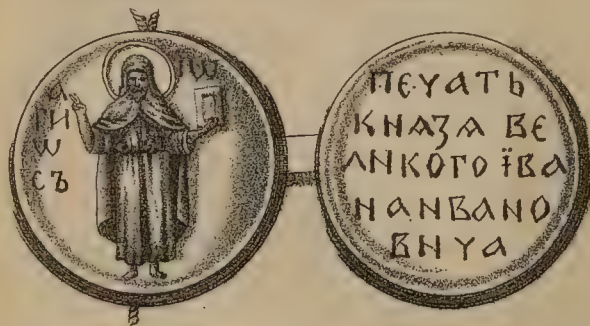 А
ГИ
Ѡ
ЄЪ
ІѠ
ПЕЧАТЬ
КНѦЗѦ ВЕ
ЛИКОГО ЇВА
НАИВАНО
ВИЧА